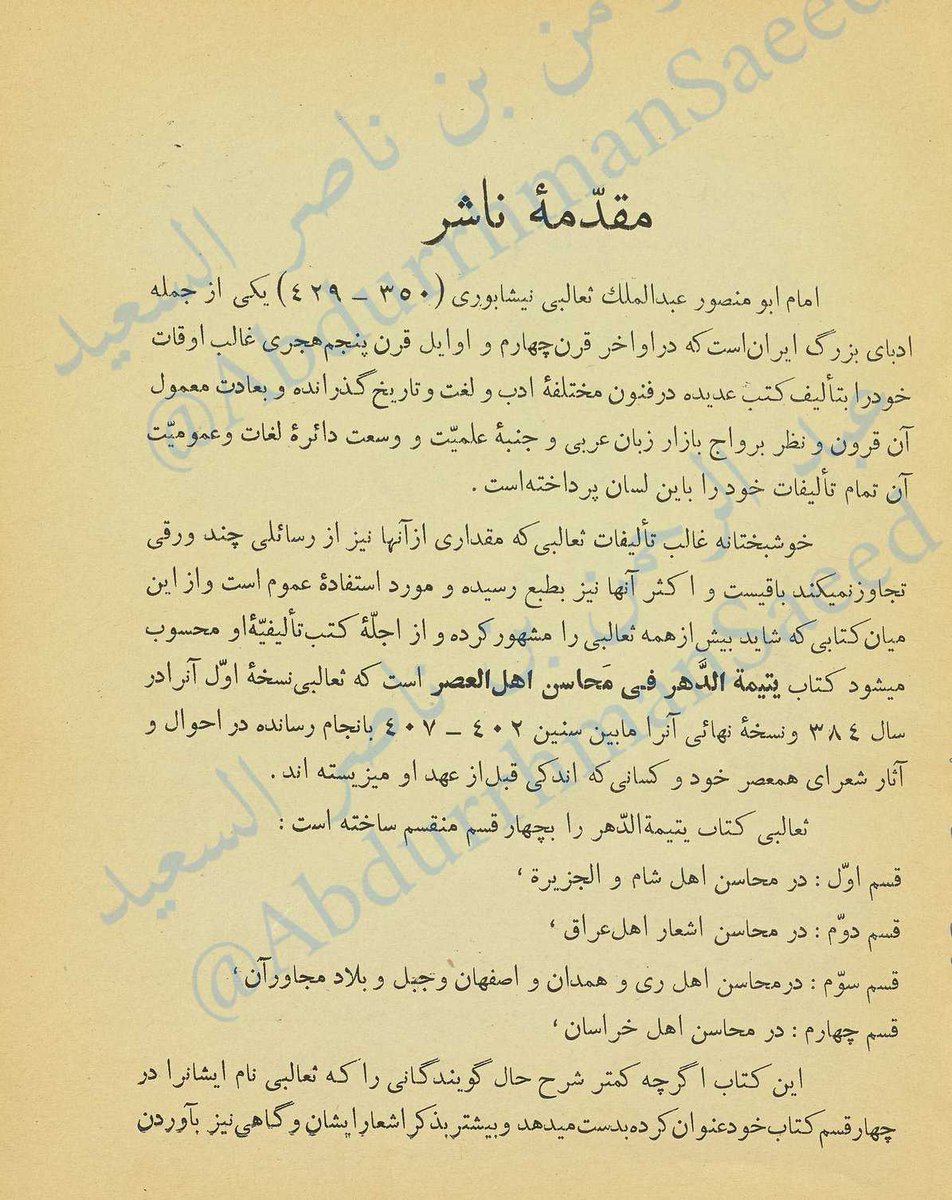 مقدّمهٔ ناشر
امام ابو منصور عبدالملك ثعالبی نیشابوری (۳۵۰ ــ ٤۲۹) یکی از جمله
ادبای بزرگ ایران‌است‌که دراواخر قرن‌چهارم و اوایل قرن پنجم‌هجری غالب اوقات
خودرا بتألیف‌کتب عدیده درفنون مختلفهٔ ادب و لغت و تاریخ گذرانده و بعادت معمول
آن قرون و نظر برواج بازار زبان عربی و جنبهٔ علمیّت و وسعت دائرهٔ لغات وعمومیّت
آن تمام تألیفات خود را باین لسان پرداخته‌است .
خوشبختانه غالب تألیفات ثعالبی‌که مقداری ازآنها نیز از رسائلی چند ورقی
تجاوزنمیکند باقیست و اکثر آنها نیز بطبع رسیده و مورد استفادهٔ عموم است وازاین
میان‌کتابی‌که شاید بیش‌ازهمه ثعالبی را مشهورکرده و از اجلّهٔ کتب‌تألیفیّهٔ‌او محسوب
میشود کتاب یتیمة الدَّهر فی مَحاسن اهل‌العصر است که ثعالبی‌نسخهٔ اوّل آنرادر
سال ۳۸٤ ونسخهٔ نهائی آنرا مابین سنین ٤۰۲ ــ ٤۰۷ بانجام رسانده در احوال و
آثار شعرای همعصر خود و کسانی‌که اندکی قبل‌از عهد او میزیسته اند .
ثعالبی کتاب یتیمةالدّهر را بچهار قسم منقسم ساخته است :
قسم اوّل : در محاسن اهل شام و الجزیرة ،
قسم دوّم : در محاسن اشعار اهل‌عراق ،
قسم سوّم : درمحاسن اهل ری و همدان و اصفهان وجبل و بلاد مجاورآن ،
قسم چهارم : در محاسن اهل خراسان ،
این کتاب اگرچه کمتر شرح حال گویندگانی را که ثعالبی نام ایشانرا در
چهارقسم‌کتاب‌خودعنوان‌کرده‌بدست‌میدهد وبیشتربذکراشعارایشان وگاهی‌نیز بآوردن
عبد الرحمن بن ناصر السعيد
@AbdurrhmanSaeed